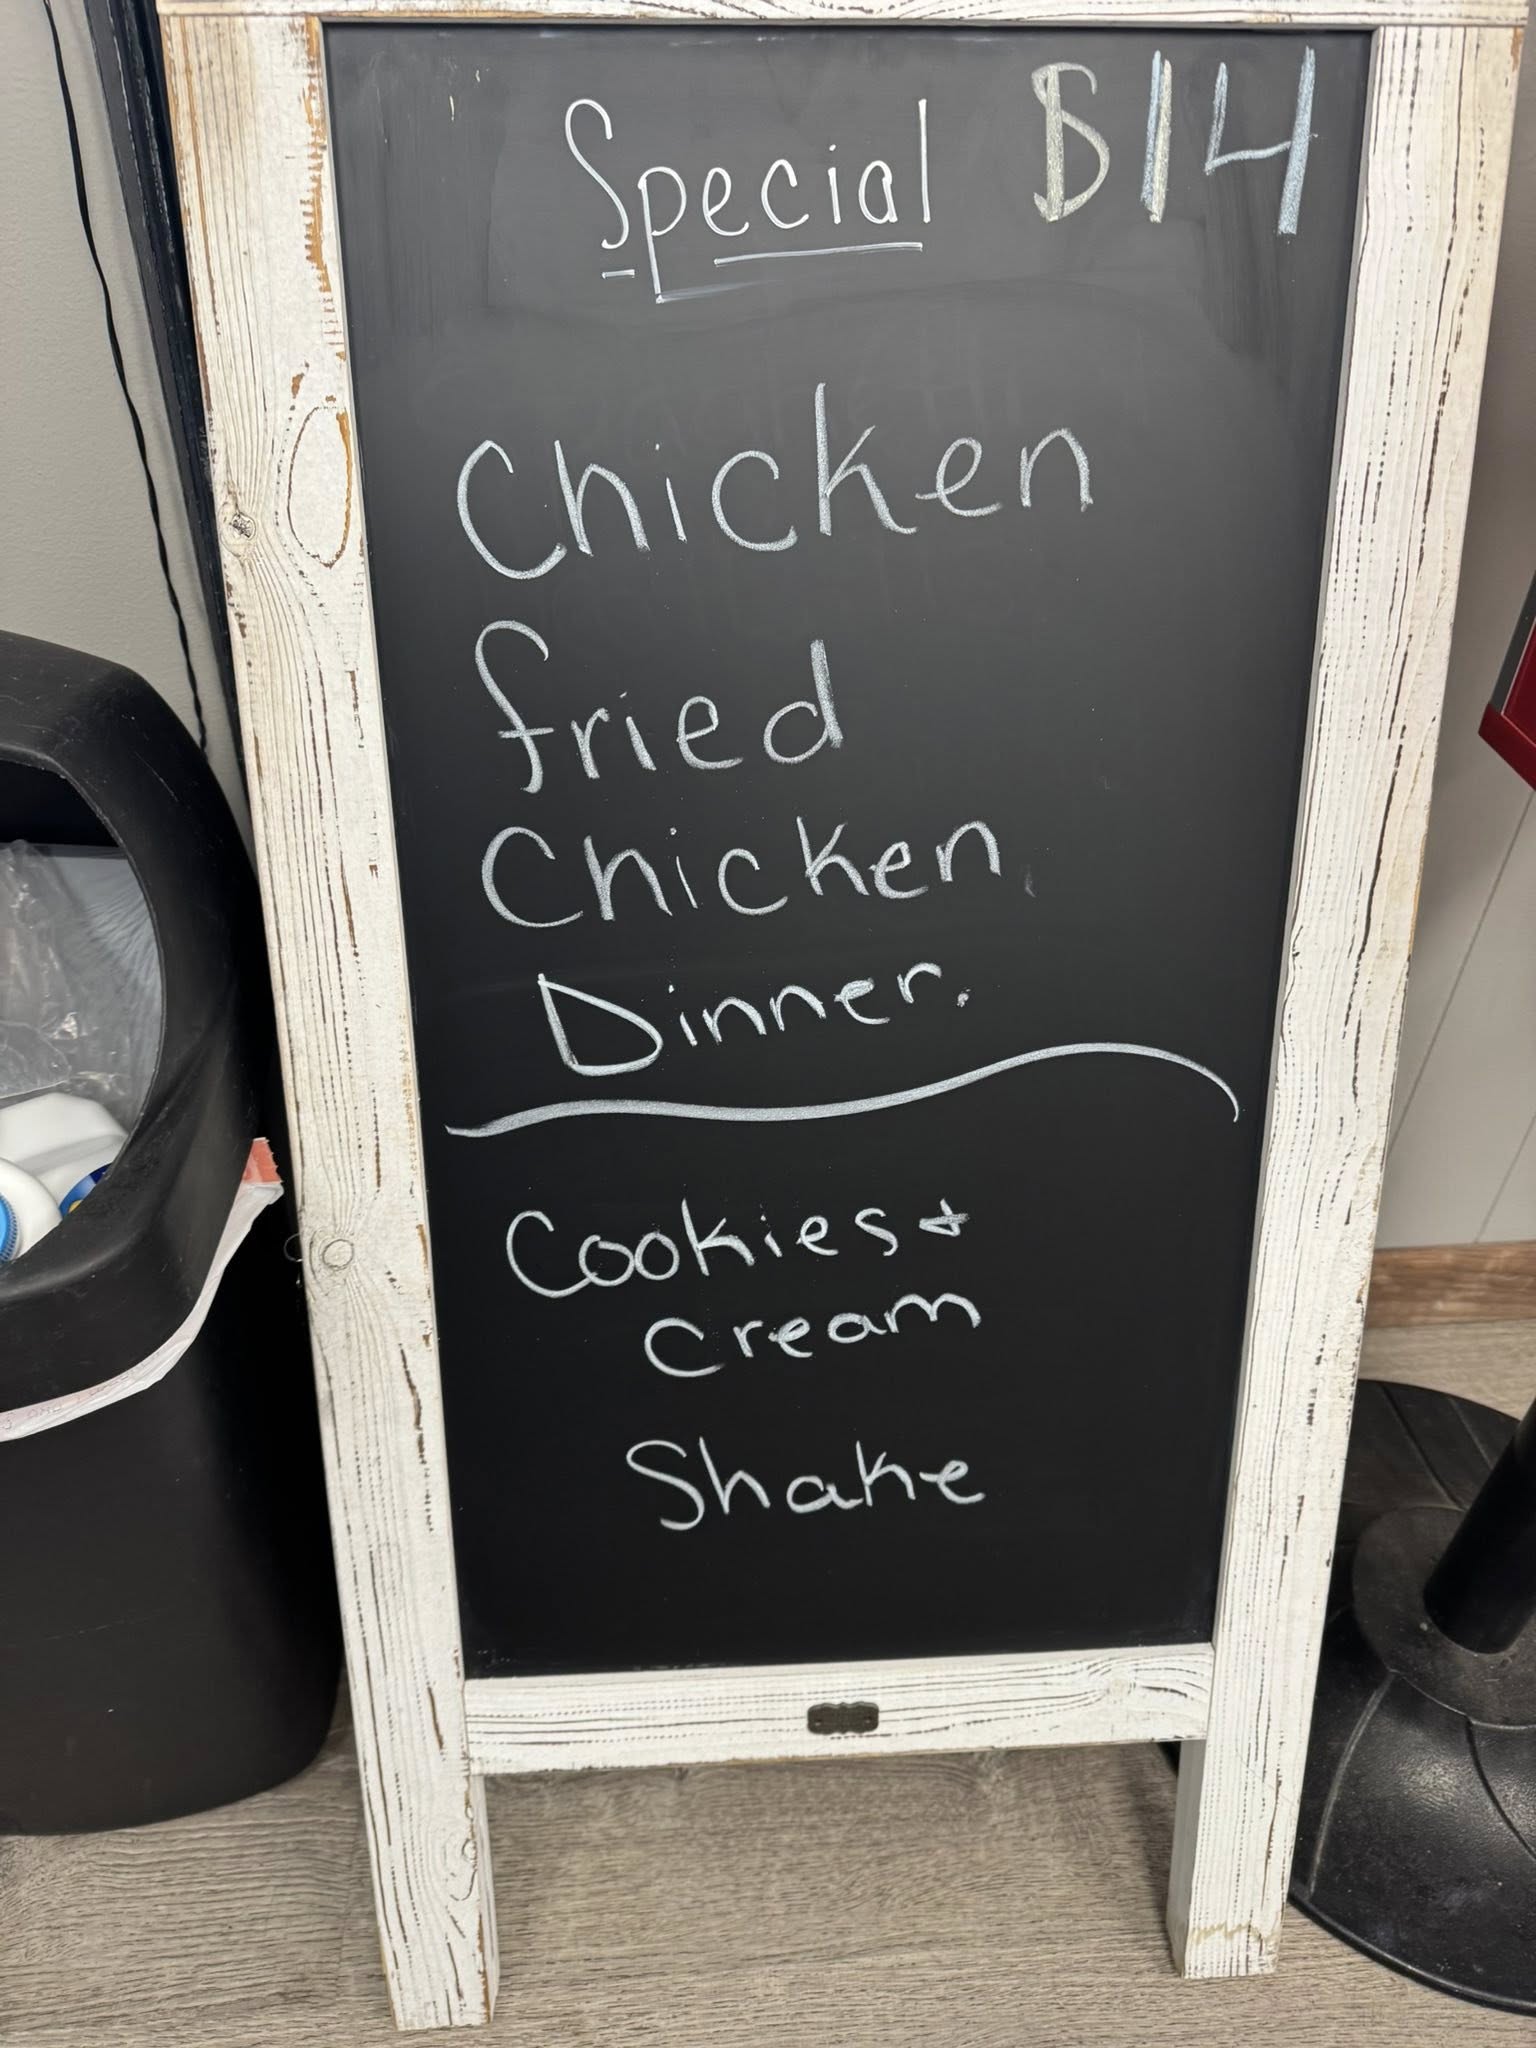 Special $14
Chicken
fried
Chicken
Dinner.
Cookies +
Cream
Shake